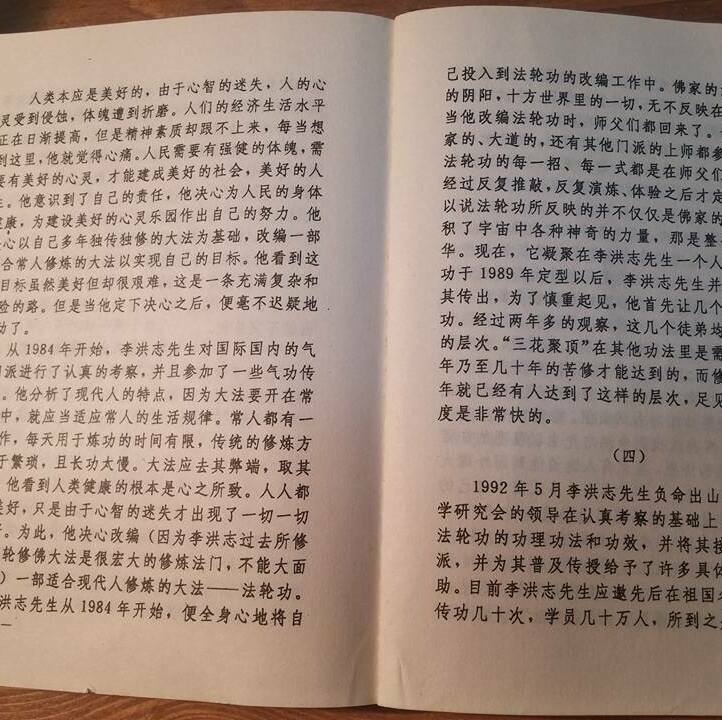 人类本应是美好的，由于心智的迷失，人的心
灵受到侵蚀，体魄遭到折磨。人们的经济生活水平
正在日渐提高，但是精神素质却跟不上来，每当想
到这里，他就觉得心痛。人民需要有强健的体魄，需
要有美好的心灵，才能建成美好的社会，美好的人
。他意识到了自己的责任，他决心为人民的身体
健康，为建设美好的心灵乐园作出自己的努力。他
决心以自己多年独传独修的大法为基础，改编一部
合常人修炼的大法以实现自己的目标。他看到这
目标虽然美好但却很艰难，这是一条充满复杂和
险的路。但是当他定下决心之后，便毫不迟疑地
动了。
从1984年开始，李洪志先生对国际国内的气
门派进行了认真的考察，并且参加了一些气功传
。他分析了现代人的特点，因为大法要开在常
中，就应当适应常人的生活规律。常人都有一
作，每天用于炼功的时间有限，传统的修炼方
于繁琐，且长功太慢。大法应去其弊端，取其
他看到人类健康的根本是心之所致。人人都
美好，只是由于心智的迷失才出现了一切一切
。为此，他决心改编（因为李洪志过去所修
轮修佛大法是很宏大的修炼法门，不能大面
）一部适合现代人修炼的大法——法轮功。
洪志先生从1984年开始，便全身心地将自
己投入到法轮功的改编工作中。佛家的
的阴阳，十方世界里的一切，无不反映在
当他改编法轮功时，师父们都回来了。
家的、大道的，还有其他门派的上师都参
法轮功的每一招、每一式都是在师父们
经过反复推敲，反复演炼、体验之后才定
以说法轮功所反映的并不仅仅是佛家的
积了宇宙中各种神奇的力量，那是整
华。现在，它凝聚在李洪志先生一个人
功于1989年定型以后，李洪志先生并
其传出，为了慎重起见，他首先让几个
功。经过两年多的观察，这几个徒弟均
的层次。“三花聚顶”在其他功法里是需
年乃至几十年的苦修才能达到的，而修
年就已经有人达到了这样的层次，足见
度是非常快的。
（四）
1992年5月李洪志先生负命出山
学研究会的领导在认真考察的基础上
法轮功的功理功法和功效，并将其接
派，并为其普及传授给予了许多具体
助。目前李洪志先生应邀先后在祖国
传功几十次，学员几十万人，所到之